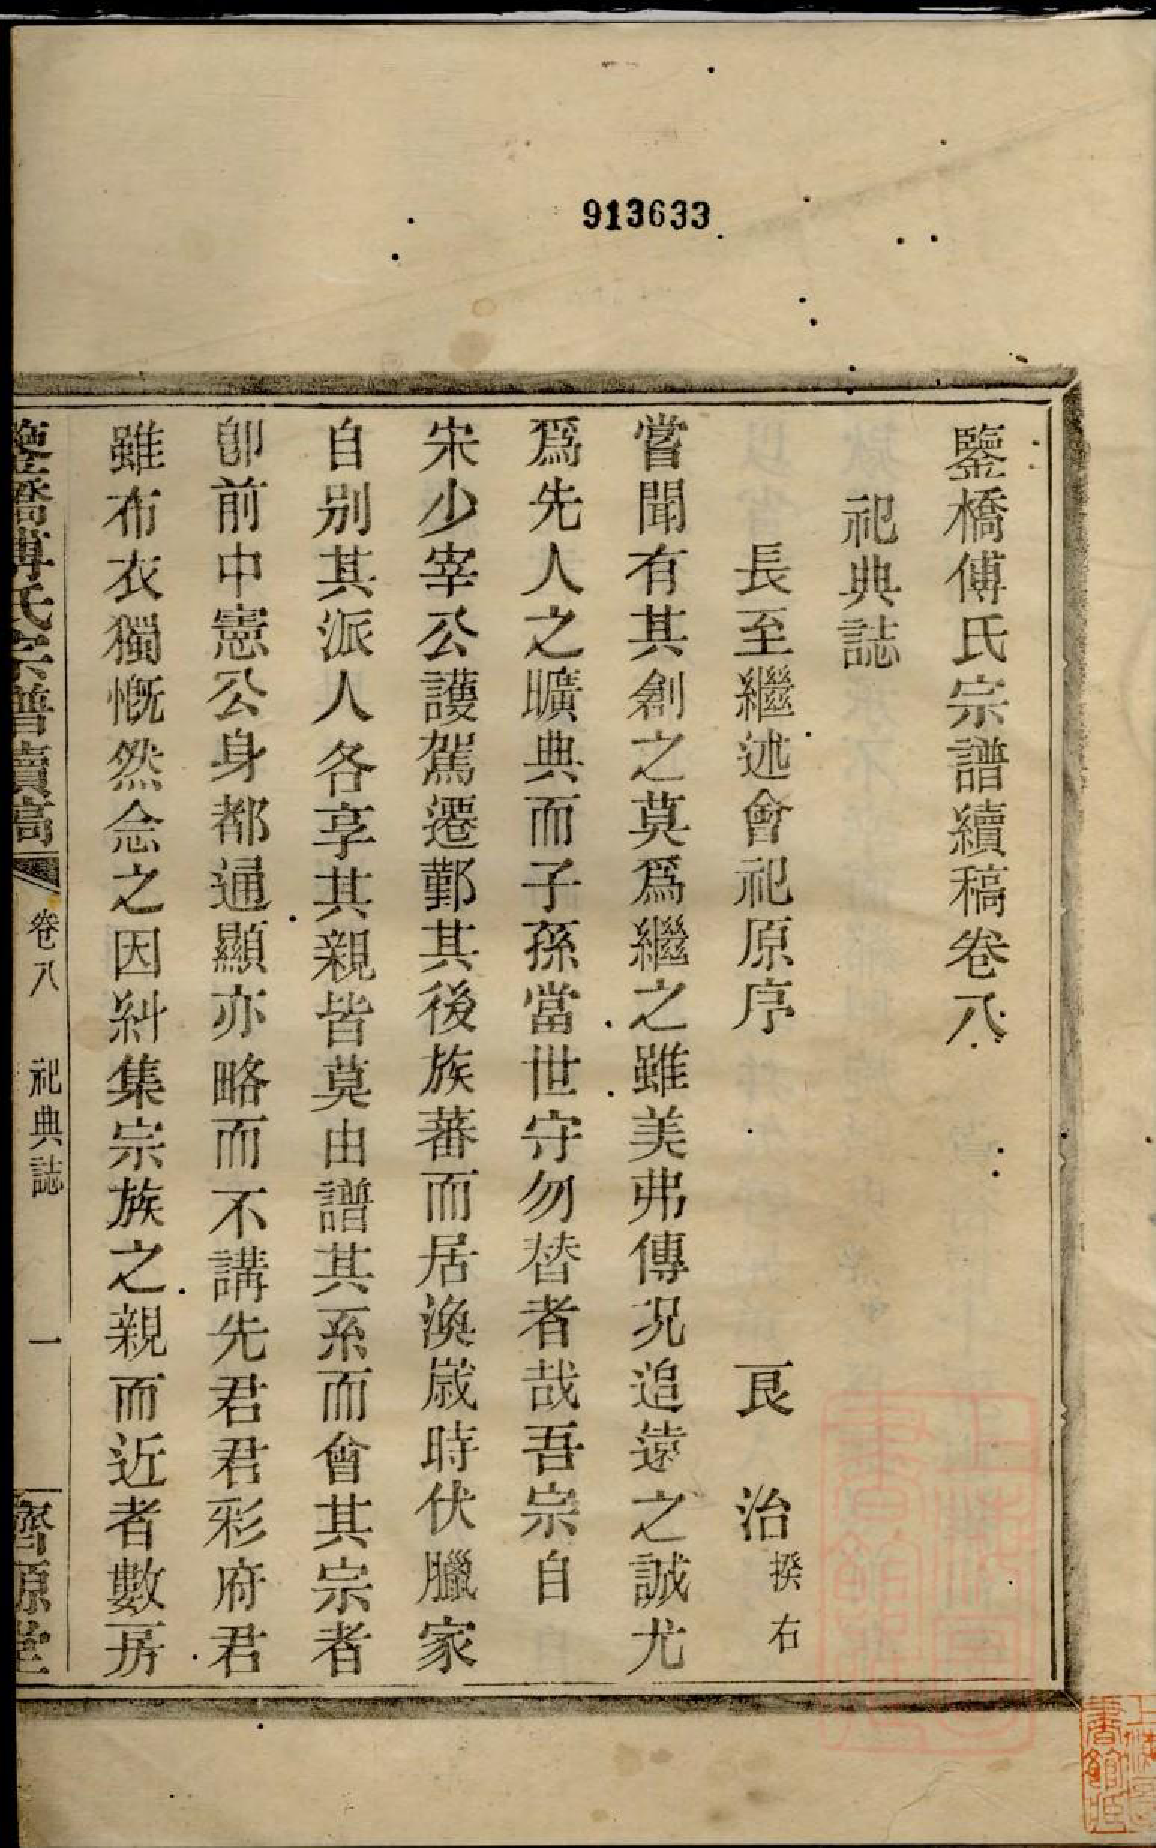 913633
鑒橋傅氏宗譜續稿卷八
祀典誌
長至繼述會祀原序 良治 揆右
嘗聞有其創之莫爲繼之雖美弗傳況追遠之誠尤
爲先人之曠典而子孫當世守勿替者哉吾宗自
宋少宰公護駕遷鄞其後族蕃而居渙歲時伏臘家
自別其派人各享其親皆莫由譜其系而會其宗者
卽前中憲公身都通顯亦略而不講先君君彩府君
雖布衣獨慨然念之因糾集宗族之親而近者數房
鑒橋傅氏宗譜續稿 卷八 祀典誌 一 濟源堂
上海圖書館藏
上海圖書館藏